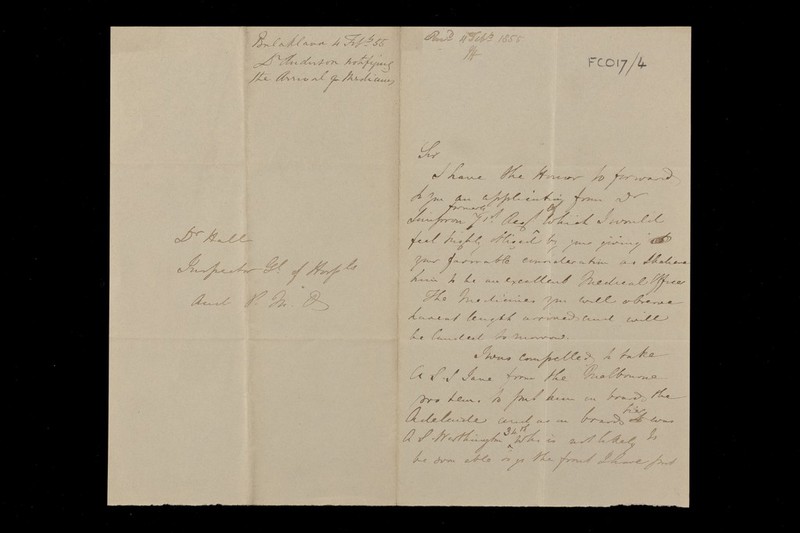 Balaklava 4 Feby 55
Dr Anderson notifying
the Arrival of Medicines
Dr Hall
Inspector Gl of Hospls
and P. M. O
Recd 4 Feby 1855
FCO17/4
Sir
I have the Honor to forward
to you an application from Dr
formerly 71st Regt which I would
feel highly obliged by your giving
your favorable consideration as I believe
him to be an excellent Medical Officer
The Medicines you will observe
have at length arrived and will
be landed tomorrow.
I was compelled to take
A S S Lane from the Melbourne
pro tem. to put him on board the
Adelaide and as on board her was
A S Worthington 34th who is not likely to
be soon able to go the front I have put